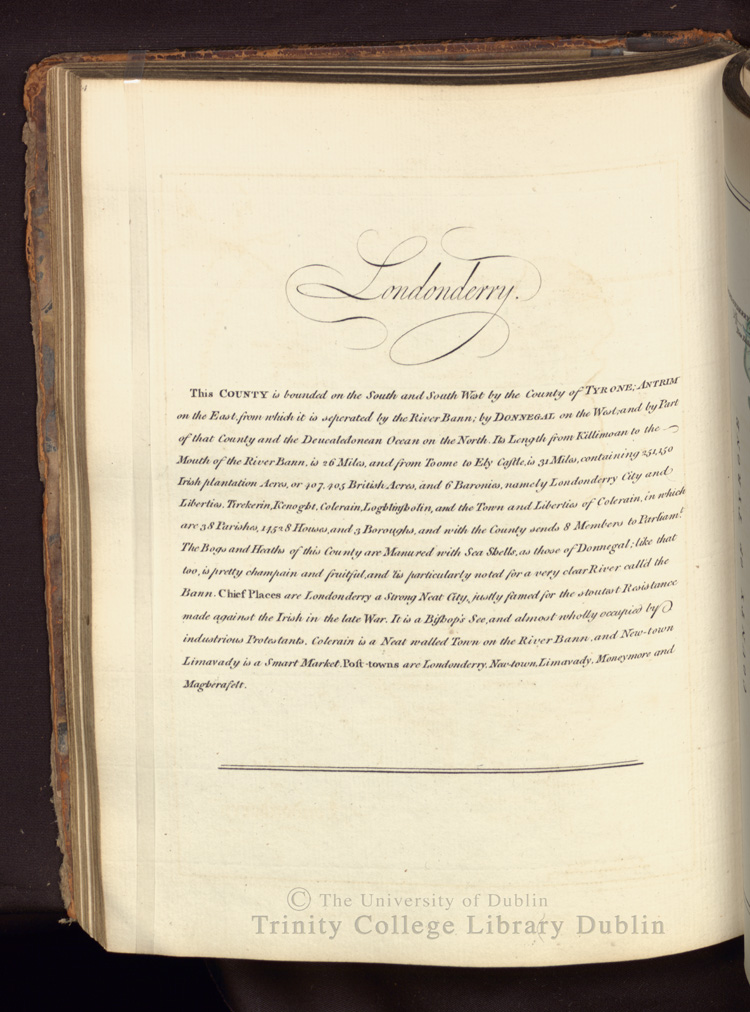 Londonderry.
This COUNTY is bounded on the South and South West by the County of TYRONE; ANTRIM
on the East, from which it is seperated by the River Bann; by DONNEGAL on the West; and by Part
of that County and the Deucaledonean Ocean on the North. Its Length from Killimoan to the
Mouth of the River Bann, is 26 Miles, and from Toome to Ely Castle, is 31 Miles, containing 251,150
Irish plantation Acres, or 407,405 British Acres, and 6 Baronies, namely Londonderry City and
Liberties, Tirekerin, Kenoght, Colerain, Loghlinsholin, and the Town and Liberties of Colerain, in which
are 38 Parishes, 14528 Houses, and 3 Boroughs, and with the County sends 8 Members to Parliamt.
The Bogs and Heaths of this County are Manured with Sea Shells, as those of Donnegal; like that
too, is pretty champain and fruitful, and 'tis particularly noted for a very clear River call'd the
Bann. Chief Places are Londonderry a Strong Neat City, justly famed for the stoutest Resistance
made against the Irish in the late War. It is a Bishop's See, and almost wholly occupied by
industrious Protestants. Colerain is a Neat walled Town on the River Bann, and New-town
Limavady is a Smart Market. Post-towns are Londonderry, New-town, Limavady, Moneymore and
Magherafelt.
© The University of Dublin
Trinity College Library Dublin